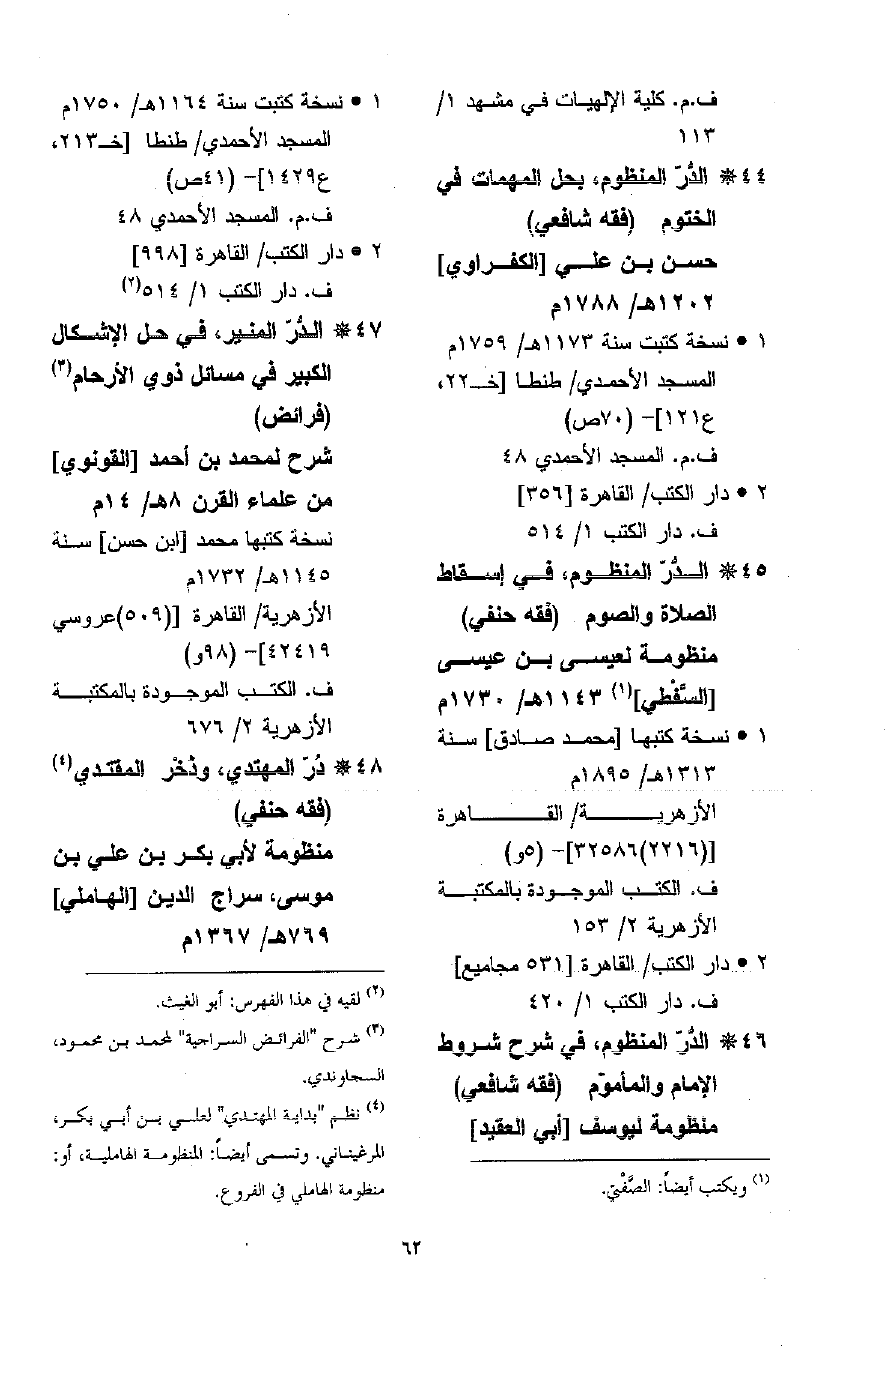 ف.م. كلية الإلهيات في مشهد ١/
١١٣
٤٤* الدُّرّ المنظوم، بحل المهمات في
الختوم (فقه شافعي)
حسن بن علي [الكفراوي]
١٢٠٢هـ/ ١٧٨٨م
١ • نسخة كتبت سنة ١١٧٣هـ/ ١٧٥٩م
المسجد الأحمدي/ طنطا [خـ٢٢،
ع١٢١]- (٧٠ص)
ف.م. المسجد الأحمدي ٤٨
٢ • دار الكتب/ القاهرة [٣٥٦]
ف. دار الكتب ١/ ٥١٤
٤٥* الدُّرّ المنظوم، في إسقاط
الصلاة والصوم (فقه حنفي)
منظومة لعيسى بن عيسى
[السَّفْطي](١) ١١٤٣هـ/ ١٧٣٠م
١ • نسخة كتبها [محمد صادق] سنة
١٣١٣هـ/ ١٨٩٥م
الأزهرية/ القاهرة
[(٢٢١٦)٣٢٥٨٦]- (٥و)
ف. الكتب الموجودة بالمكتبة
الأزهرية ٢/ ١٥٣
٢ • دار الكتب/ القاهرة [٥٣١ مجاميع]
ف. دار الكتب ١/ ٤٢٠
٤٦* الدُّرّ المنظوم، في شرح شروط
الإمام والمأموم (فقه شافعي)
منظومة ليوسف [أبي العقيد]
(١) ويكتب أيضاً: الصَّفْتي.
١ • نسخة كتبت سنة ١١٦٤هـ/ ١٧٥٠م
المسجد الأحمدي/ طنطا [خـ٢١٣،
ع١٤٢٩]- (٤١ص)
ف.م. المسجد الأحمدي ٤٨
٢ • دار الكتب/ القاهرة [٩٩٨]
ف. دار الكتب ١/ ٥١٤(٢)
٤٧* الدُّرّ المنير، في حل الإشكال
الكبير في مسائل ذوي الأرحام(٣)
(فرائض)
شرح لمحمد بن أحمد [القونوي]
من علماء القرن ٨هـ/ ١٤م
نسخة كتبها محمد [ابن حسن] سنة
١١٤٥هـ/ ١٧٣٢م
الأزهرية/ القاهرة [(٥٠٩)عروسي
٤٢٤١٩]- (٩٨و)
ف. الكتب الموجودة بالمكتبة
الأزهرية ٢/ ٦٧٦
٤٨* دُرّ المهتدي، وذُخْر المقتدي(٤)
(فقه حنفي)
منظومة لأبي بكر بن علي بن
موسى، سراج الدين [الهاملي]
٧٦٩هـ/ ١٣٦٧م
(٢) لقبه في هذا الفهرس: أبو الغيث.
(٣) شرح "الفرائض السراجية" لمحمد بن محمود،
السجاوندي.
(٤) نظم "بداية المهتدي" لعلي بن أبي بكر،
المرغيناني. وتسمى أيضاً: المنظومة الهاملية، أو:
منظومة الهاملي في الفروع.
٦٢